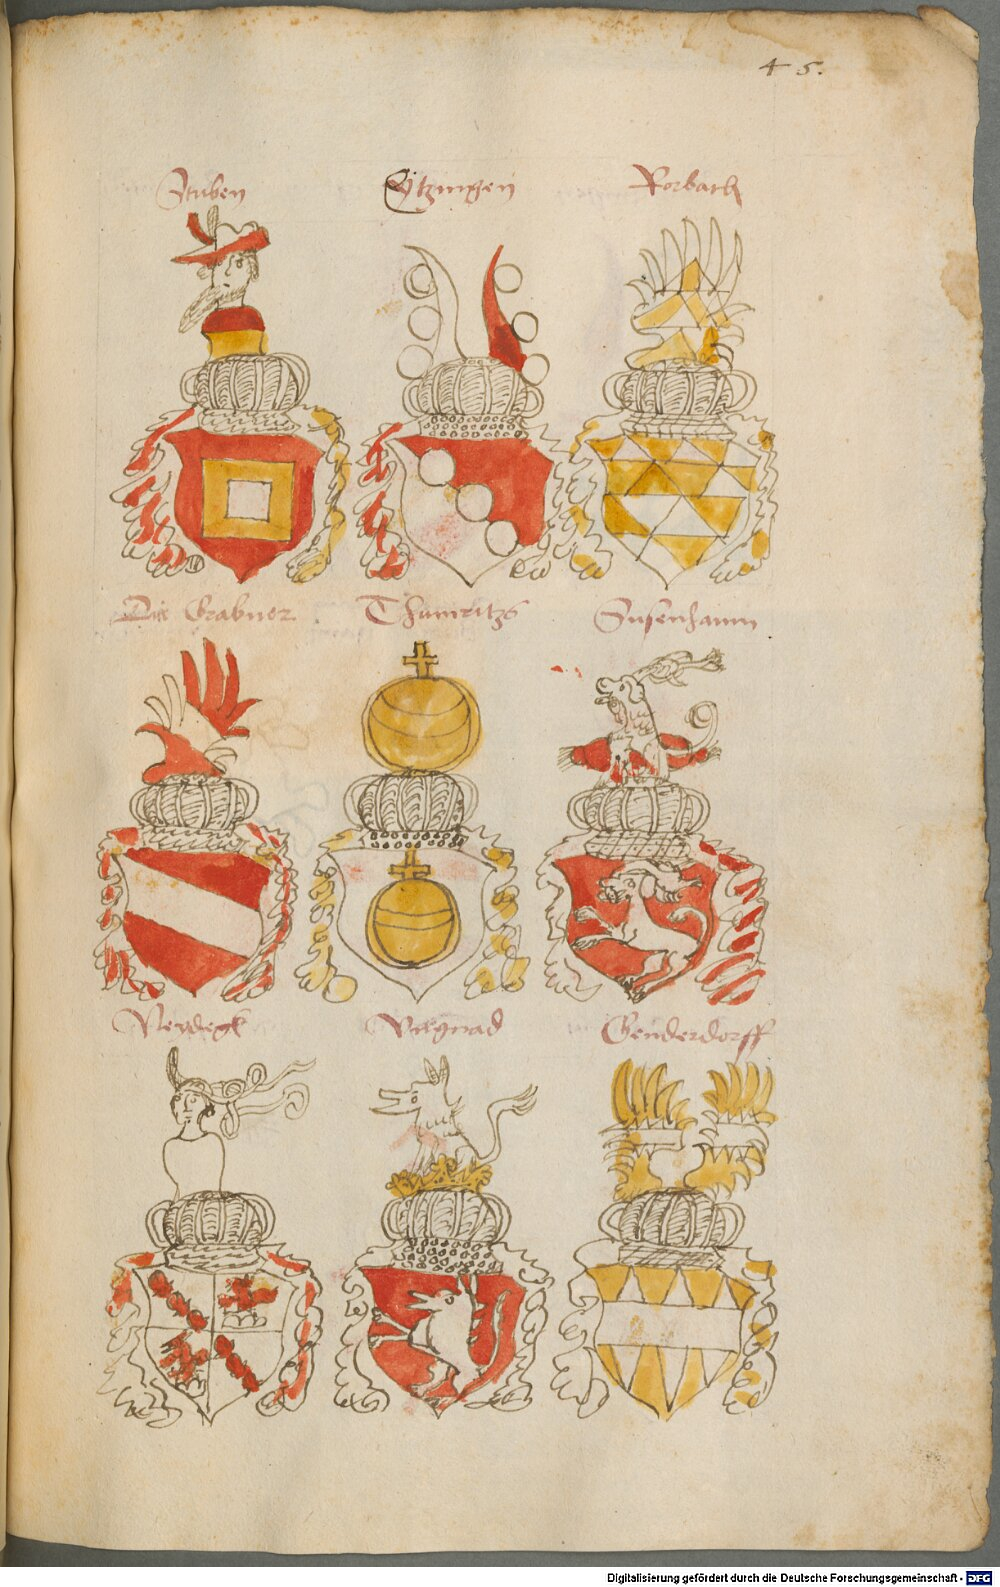 45.
Stuben
Eytzingen
Rorbach
Die Grabner
Thumritzs
Susenhaim
Neydegk
Volgnad
Genderdorff
Digitalisierung gefördert durch die Deutsche Forschungsgemeinschaft - DFG